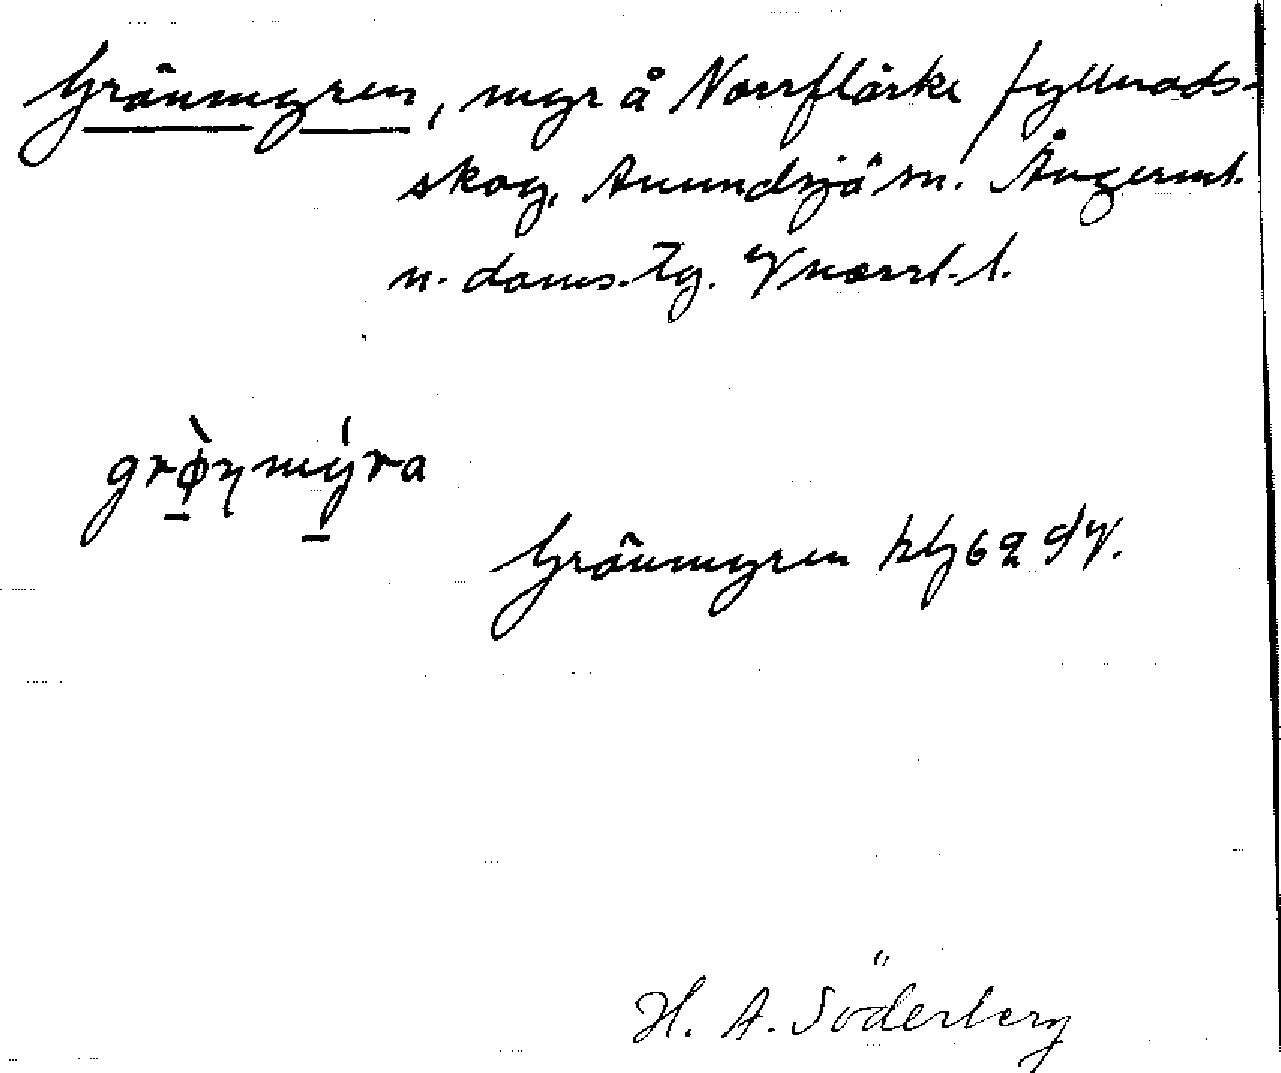 Grönmyren, myr å Norrflärke fyllnads-
skog, Anundsjö sn. Ångerml.
n. doms. tg. Vnorrl. l.
grø̀nmýra
Grönmyren
H. A. Söderberg